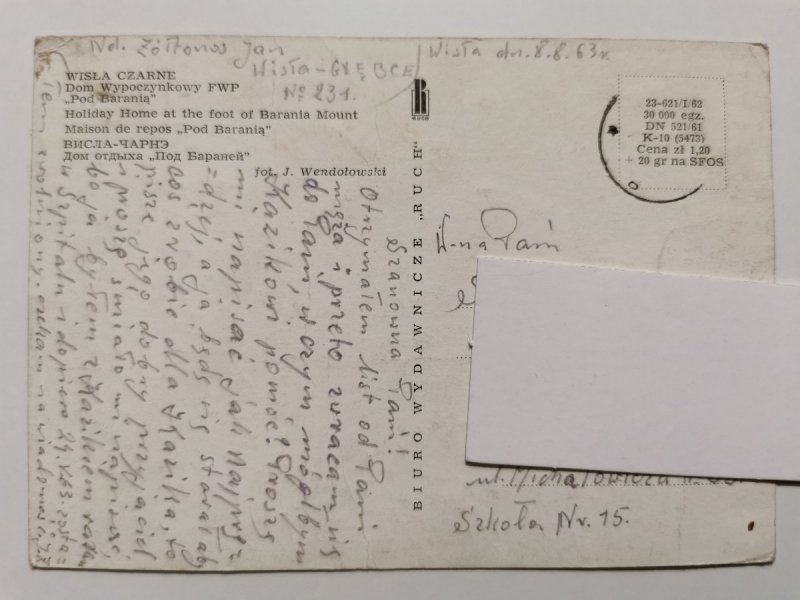 Nd. Żółtonos Jan
Wisła-GŁĘBCE
No 231.
Wisła dn. 8.8.63r
WISŁA CZARNE
Dom Wypoczynkowy FWP
„Pod Baranią”
Holiday Home at the foot of Barania Mount
Maison de repos „Pod Baranią”
ВИСЛА-ЧАРНЭ
Дом отдыха „Под Бараней”
fot. J. Wendołowski
RUCH
BIURO WYDAWNICZE „RUCH”
23-621/I/62
30 000 egz.
DN 521/61
K-10 (5473)
Cena zł 1,20
+ 20 gr na SFOS
Szanowna Pani!
Otrzymałem list od Pani
męża i przeto zwracam się
do Pani, w czym mógłbym
Kazikowi pomóc? Proszę
mi napisać jak najprę=
=dzej, a ja będę się starał aby
coś zrobić dla Kazika, to
pisze jego dobry przyjaciel
i proszę śmiało mi napisać,
bo ja byłem z Kazikiem razem
w Szpitalu i dopiero 24 63. zosta=
=łem zwolniony. czekam na wiadomość.
W-na Pani
ul. Michałowicza
Szkoła Nr. 15.